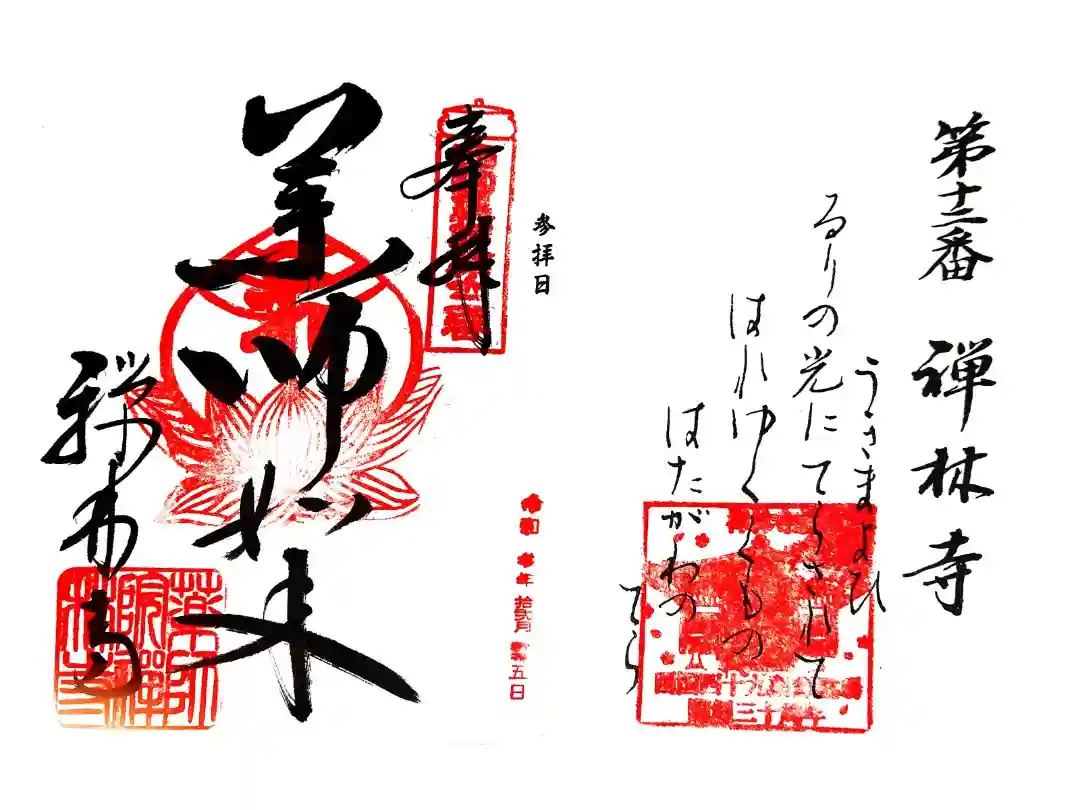 第十二番 禅林寺
うきまよひ
るりの光にてらされて
はれゆくくもの
はたがわの
てら
参拝日
令和 年 月 五日
奉拝
薬師如来
禅林寺